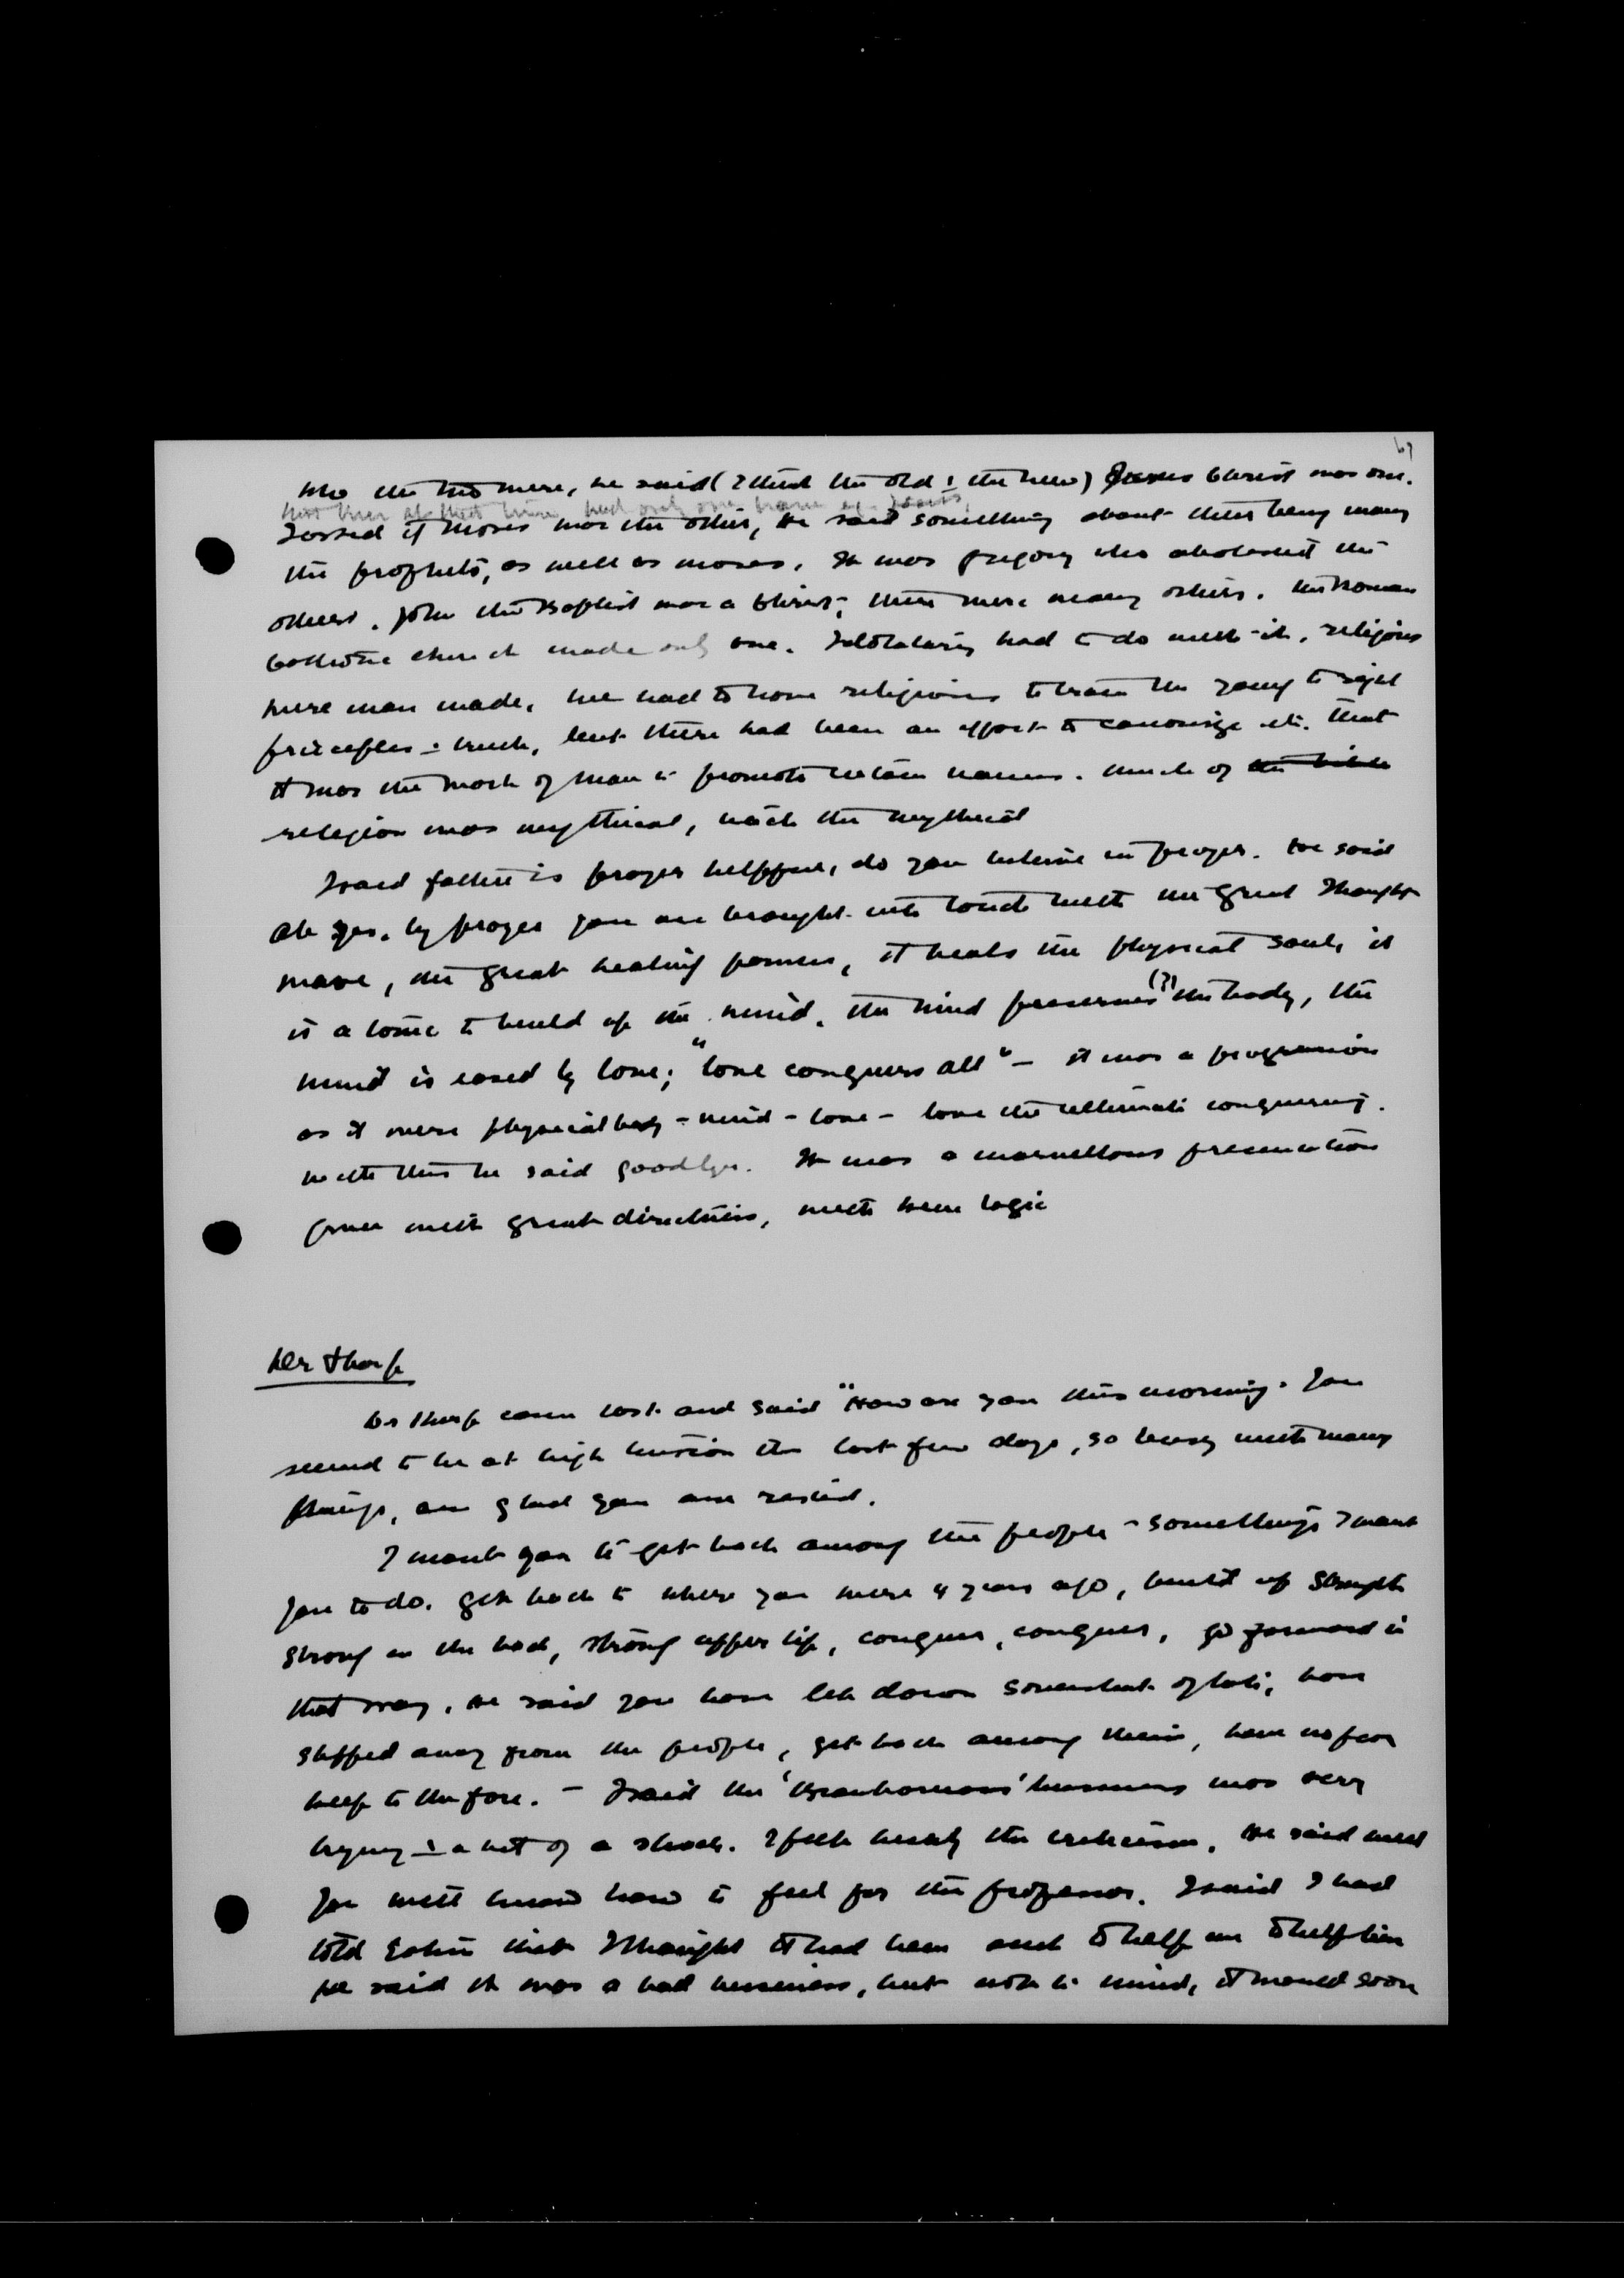 67
who the two were, he said (I think the old & the new) Jesus Christ was one.
that time at that time had only one name
I asked if Moses was the other, he said something about their being many
the prophets, as well as moses. It was Gregory who abolished the
others. John the Baptist was a Christ; there were many others. The Roman
Catholic church made only one. Idolatary had to do with it. religions
were man made, we had to have religions to train the young to right
principles & truth, but there had been an effort to canonize it. that
it was the work of man to promote certain names. much of the bible
religion was mythical, the mythical
I said father is prayer helpful, do you believe in prayer. He said
Oh yes. by prayer you are brought into touch with the great Thought
wave, the great healing powers, it heals the physical soul, it
is a tonic to build up the mind. the mind preserves (?) the body, the
mind is eased by love; "love conquers all" – it was a progression
as it were physical body – mind – love – love the ultimate conquering.
with this he said goodbye. It was a marvellous presentation
given with great directness, with keen logic
Dr Tharp
Dr Tharp came last and said "How are you this morning. You
seemed to be at high tension the last few days, so busy with many
things, am glad you are rested.
I want you to get back among the people – somethings I want
you to do. get back to where you were 4 years ago, build up strength
strong in the back, strong upper lip, conquer, conquer, go forward in
that way. He said you have let down somewhat of late, have
slipped away from the people, get back among them, have no fear
keep to the fore. – I said the business was very
trying & a bit of a shock. I felt keenly the criticism. He said well
you will know how to feel for the professor. I said I had
told that I thought it had been sent to help me to help him
he said it was a bad business, but not to mind, it would soon